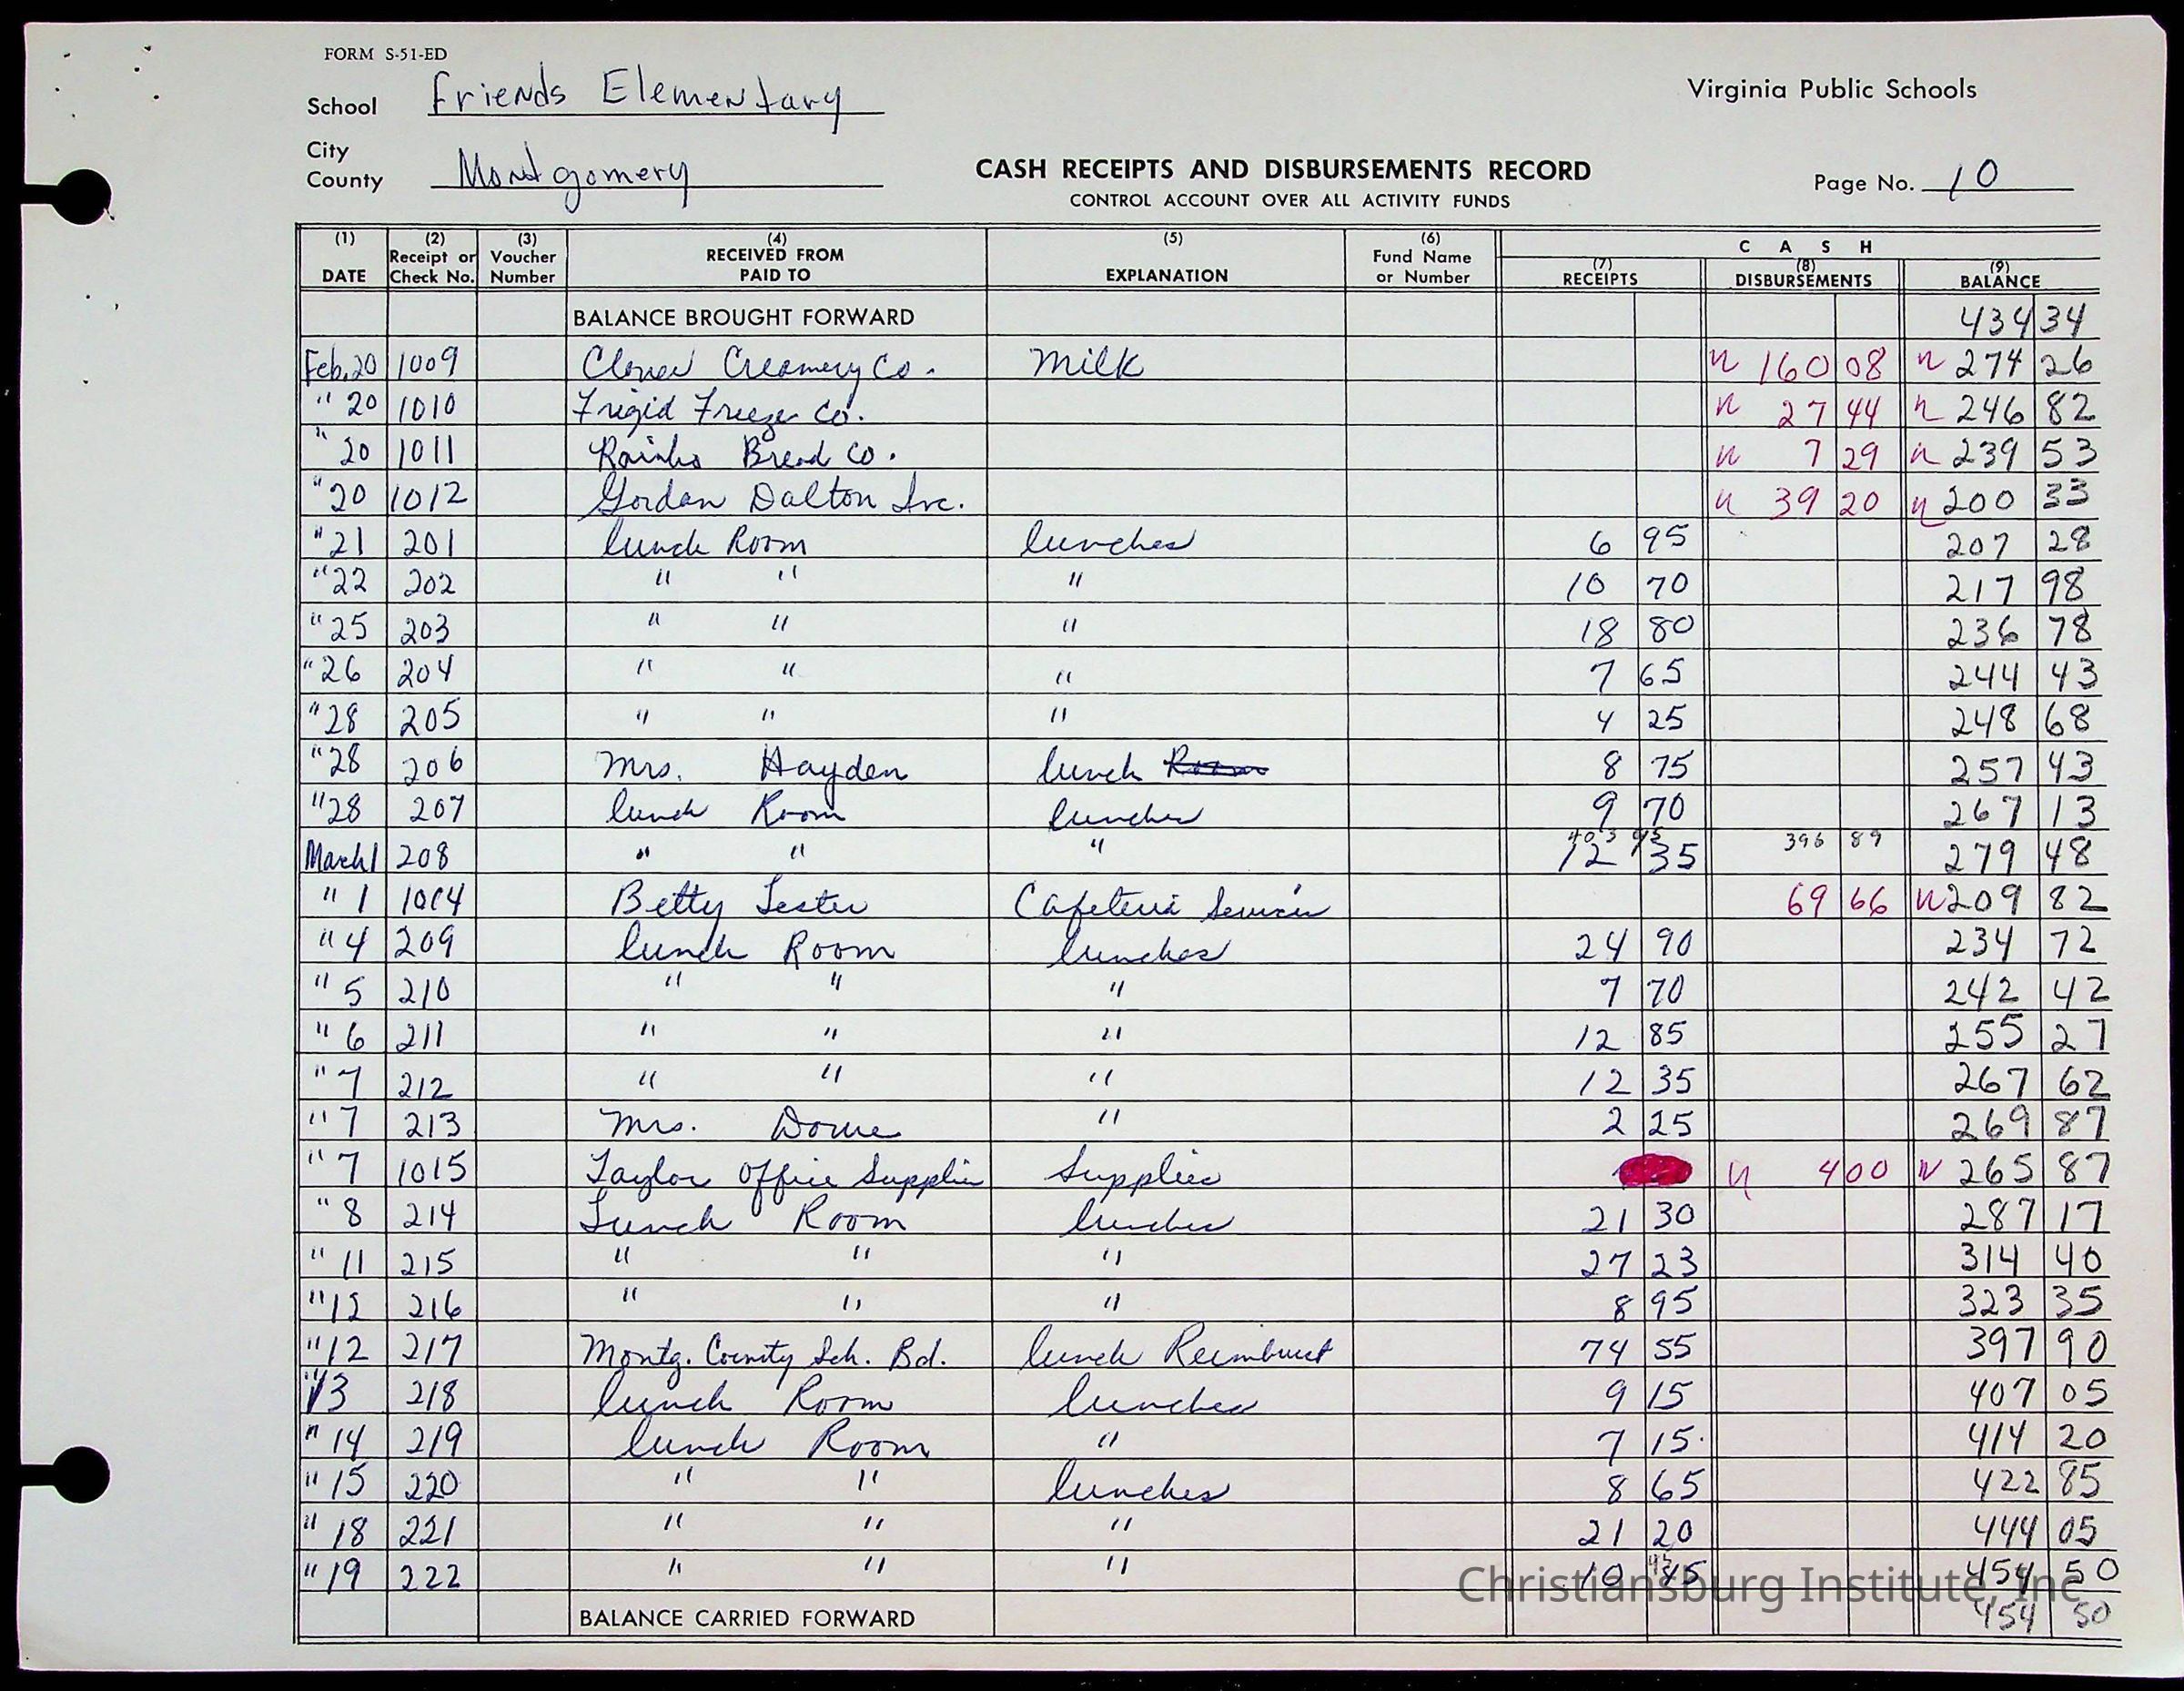 FORM S-51-ED
School Friends Elementary
Virginia Public Schools
City
County Montgomery
CASH RECEIPTS AND DISBURSEMENTS RECORD
Page No. 10
CONTROL ACCOUNT OVER ALL ACTIVITY FUNDS
(1) (2) (3) (4) (5) (6) C A S H
DATE Receipt or Check No. Voucher Number RECEIVED FROM PAID TO EXPLANATION Fund Name or Number (7) RECEIPTS (8) DISBURSEMENTS (9) BALANCE
BALANCE BROUGHT FORWARD 434 34
Feb. 20 1009 Clover Creamery Co. Milk n 160 08 n 274 26
" 20 1010 Frigid Freeze Co. n 27 44 n 246 82
" 20 1011 Rainbo Bread Co. n 7 29 n 239 53
" 20 1012 Gordan Dalton Inc. n 39 20 n 200 33
" 21 201 lunch Room lunches 6 95 207 28
" 22 202 " " " 10 70 217 98
" 25 203 " " " 18 80 236 78
" 26 204 " " " 7 65 244 43
" 28 205 " " " 4 25 248 68
" 28 206 Mrs. Hayden lunch Room 8 75 257 43
" 28 207 lunch Room lunches 9 70 267 13
403 95 396 89
March 1 208 " " " 12 35 279 48
" 1 1014 Betty Lester Cafeteria Services 69 66 n 209 82
" 4 209 lunch Room lunches 24 90 234 72
" 5 210 " " " 7 70 242 42
" 6 211 " " " 12 85 255 27
" 7 212 " " " 12 35 267 62
" 7 213 Mrs. Dowe " 2 25 269 87
" 7 1015 Taylor Office Supplies Supplies n 4 00 n 265 87
" 8 214 Lunch Room lunches 21 30 287 17
" 11 215 " " " 27 23 314 40
" 12 216 " " " 8 95 323 35
" 12 217 Montg. County Sch. Bd. lunch Reimburst 74 55 397 90
" 13 218 lunch Room lunches 9 15 407 05
" 14 219 lunch Room " 7 15 414 20
" 15 220 " " lunches 8 65 422 85
" 18 221 " " " 21 20 444 05
" 19 222 " " " 10 45 454 50
Christiansburg Institute, Inc
BALANCE CARRIED FORWARD 454 50